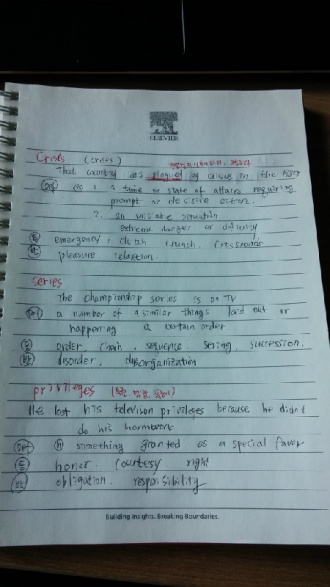 ELSEVIER
Crisis (crises)
That country was plagued by crises in the
a time or state of affairs requiring
prompt or decisive action.
2. an unstable situation
extreme danger or difficulty
emergency, clutch crunch. crossroads
pleasure relaxation.
series
The championship series is on TV
a number of a similar things laid out or
happening a certain order
order, chain, sequence string succession.
disorder, disorganization
privileges
He lost his television privileges because he didn't
do his homework
something granted as a special favor
honor. courtesy right
obligation. responsibility
Building Insights. Breaking Boundaries.